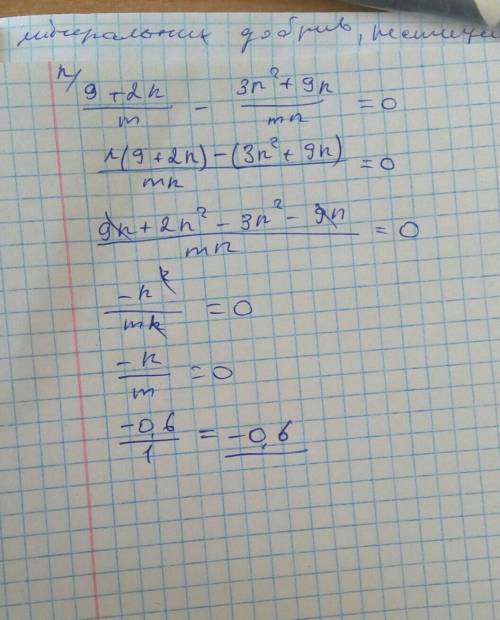 мінеральних добрив,
n/
(9+2n)/m - (3n²+9n)/mn = 0
(n(9+2n)-(3n²+9n))/mn = 0
(9n+2n²-3n²-9n)/mn = 0
-n²/mn = 0
-n/m = 0
-0,6/1 = -0,6